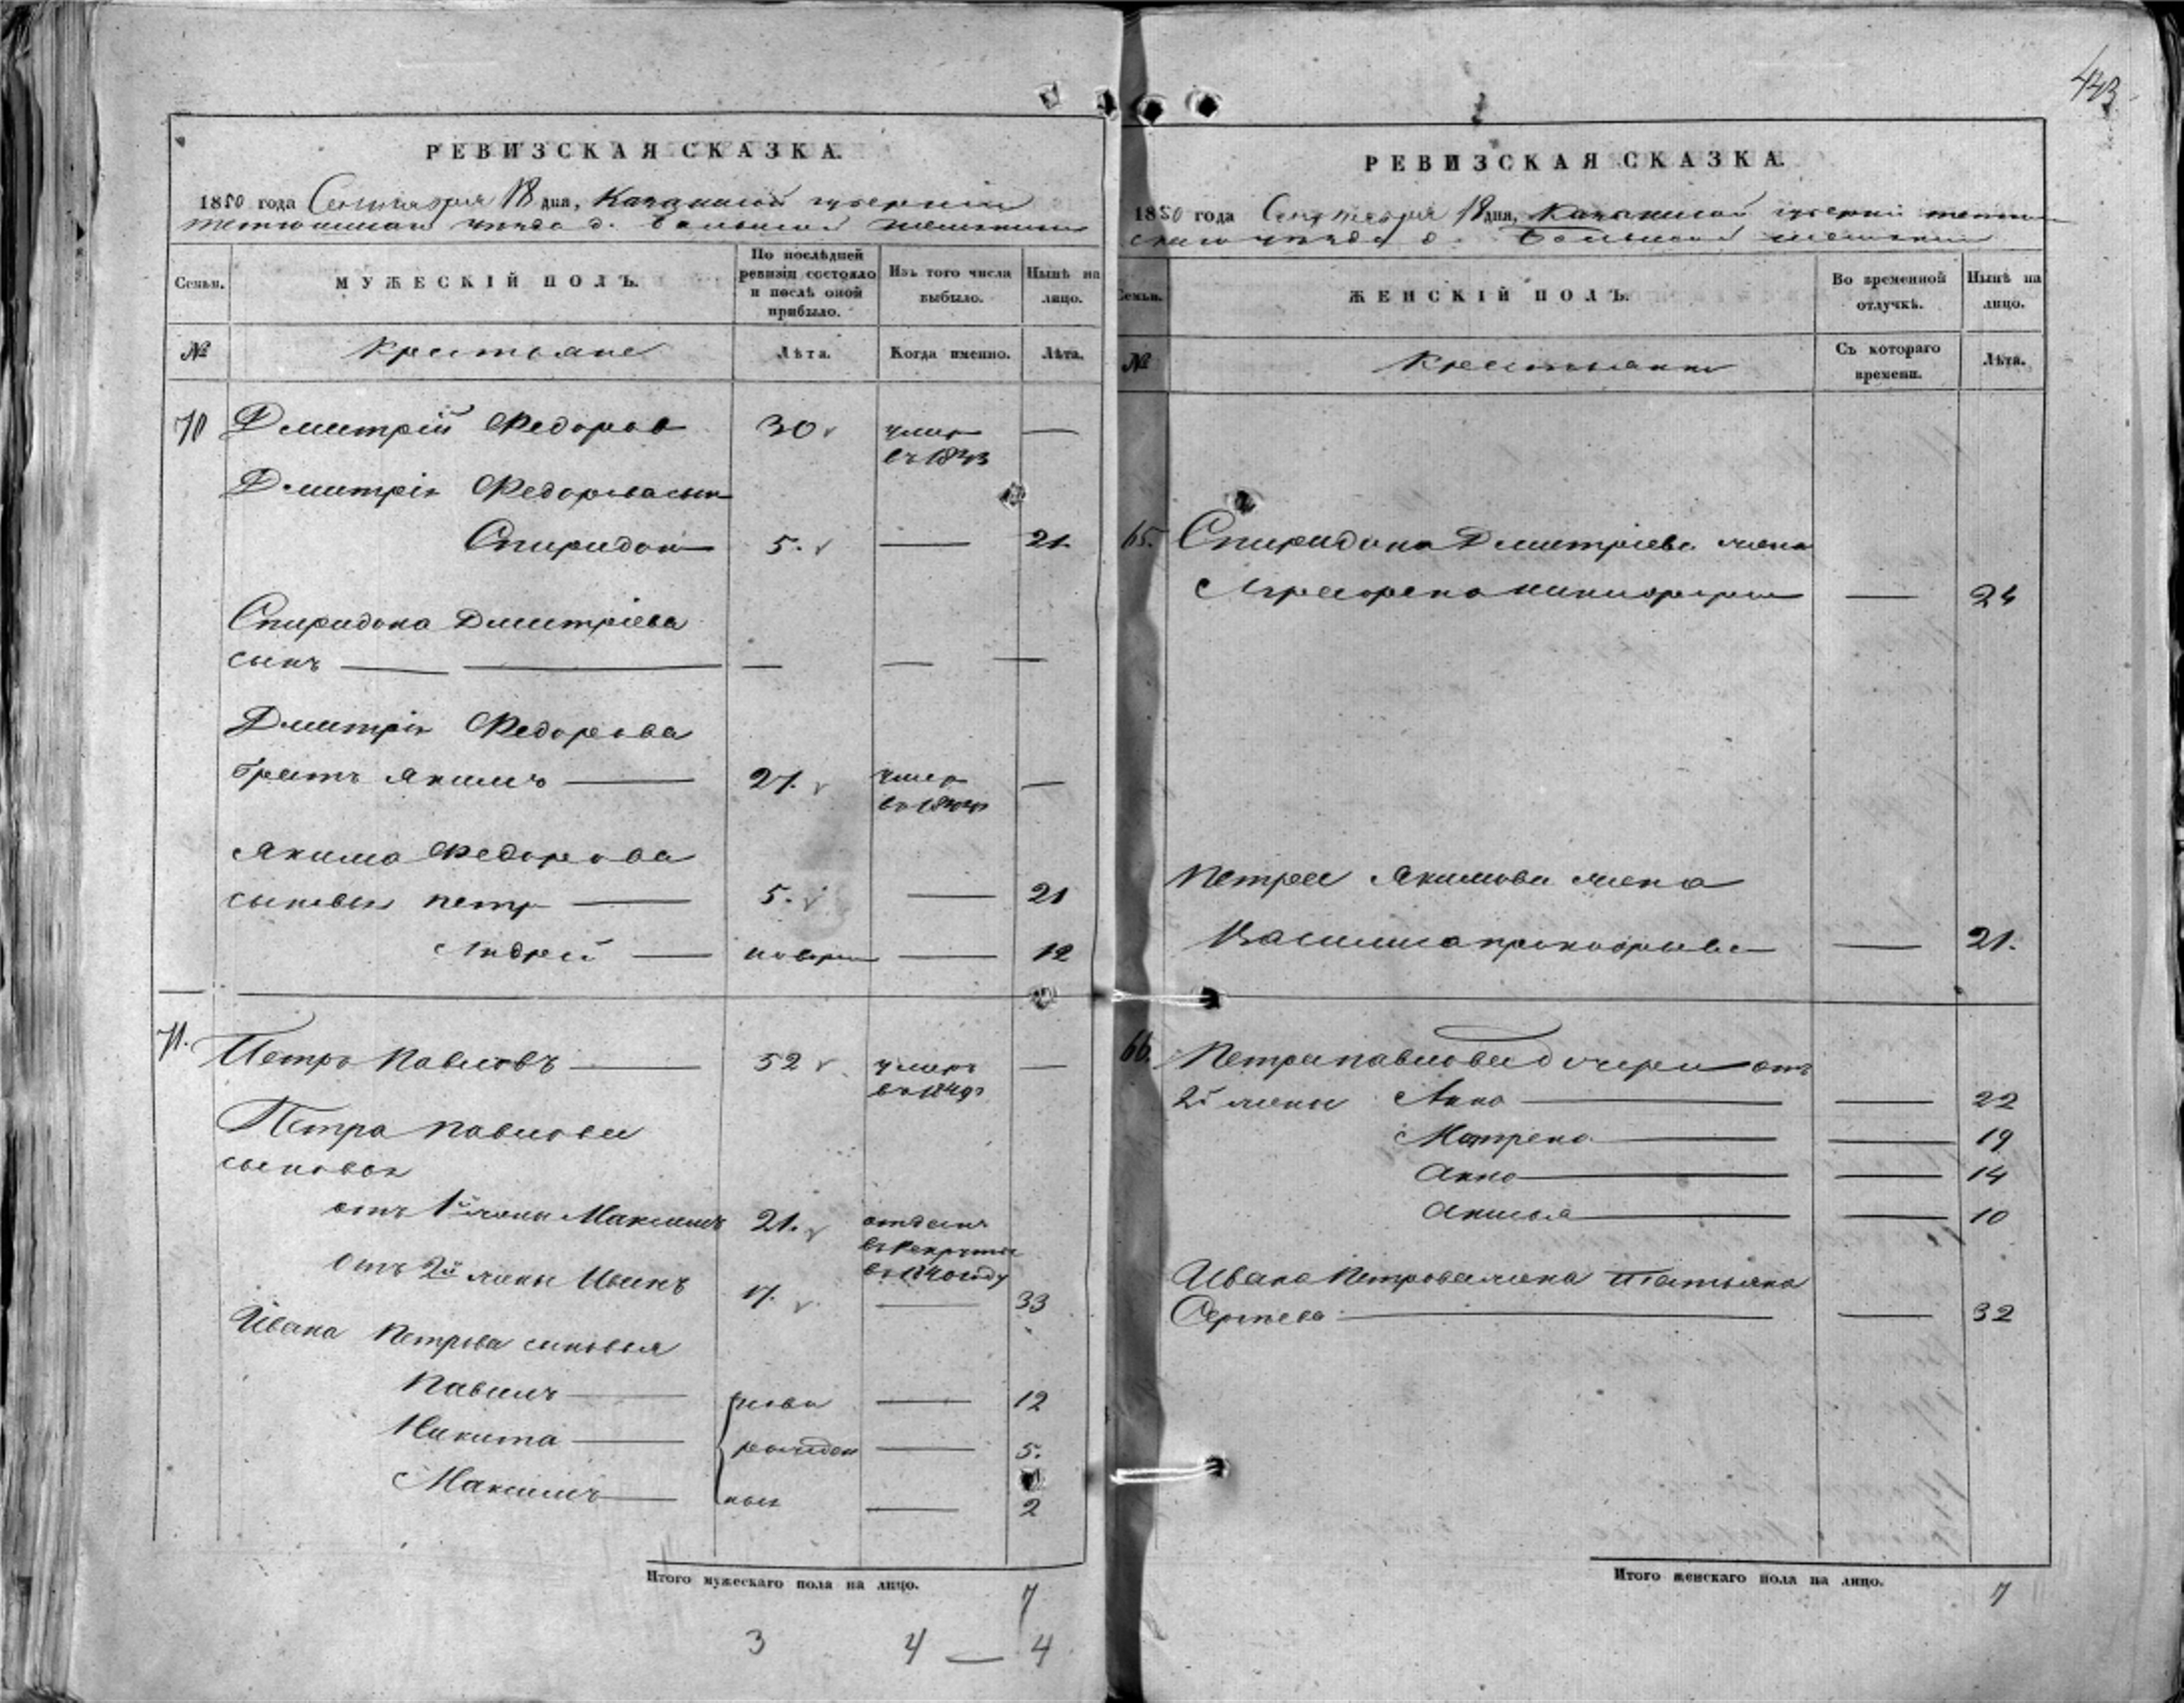 443
РЕВИЗСКАЯ СКАЗКА.
1850 года Сентября 18 дня, Казанской губерніи
Тетюшскаго уѣзда д. Большой
Семьи.
МУЖЕСКІЙ ПОЛЪ.
По послѣдней ревизіи состояло и послѣ оной прибыло.
Изъ того числа выбыло.
Нынѣ на лицо.
№
Крестьяне
Лѣта.
Когда именно.
Лѣта.
70 Дмитрій Федоров 30 умер —
въ 1843
Дмитрія Федорова сын
Спиридон 5. — 21
Спиридона Дмитріева
сынъ — — — — —
Дмитрія Федорова
братъ Якимъ — 27. умер —
Якима Федорова
сыновья Петр — 5. — 21
Андрей — — 12
71. Петръ Павловъ — 52 умеръ —
в 1849
Петра Павлова
сыновья
отъ 1й жены Максимъ 21. отданъ
въ рекруты
в 1840 году
Отъ 2й жены Иванъ 17. — 33
Ивана Петрова сыновья
Павелъ — новорожденные — 12
Никита — — 5.
Максимъ — — 2
Итого мужескаго пола на лицо. 7
3 4 — 4
РЕВИЗСКАЯ СКАЗКА.
1850 года Сентября 18 дня, Казанской губерніи Тетюш
скаго уѣзда д. Большой
Семьи.
ЖЕНСКІЙ ПОЛЪ.
Во временной отлучкѣ.
Нынѣ на лицо.
№
Крестьянки
Съ котораго времени.
Лѣта.
65. Спиридона Дмитріева жена
— 24
Петра Якимова жена
Василиса Прокофьева — 21.
66. Петра Павлова дочери отъ
2й жены Анна — — 22
Матрена — — 19
Анна — — 14
— — 10
Ивана Петрова жена Татьяна
Сергѣева — — 32
Итого женскаго пола на лицо. 7